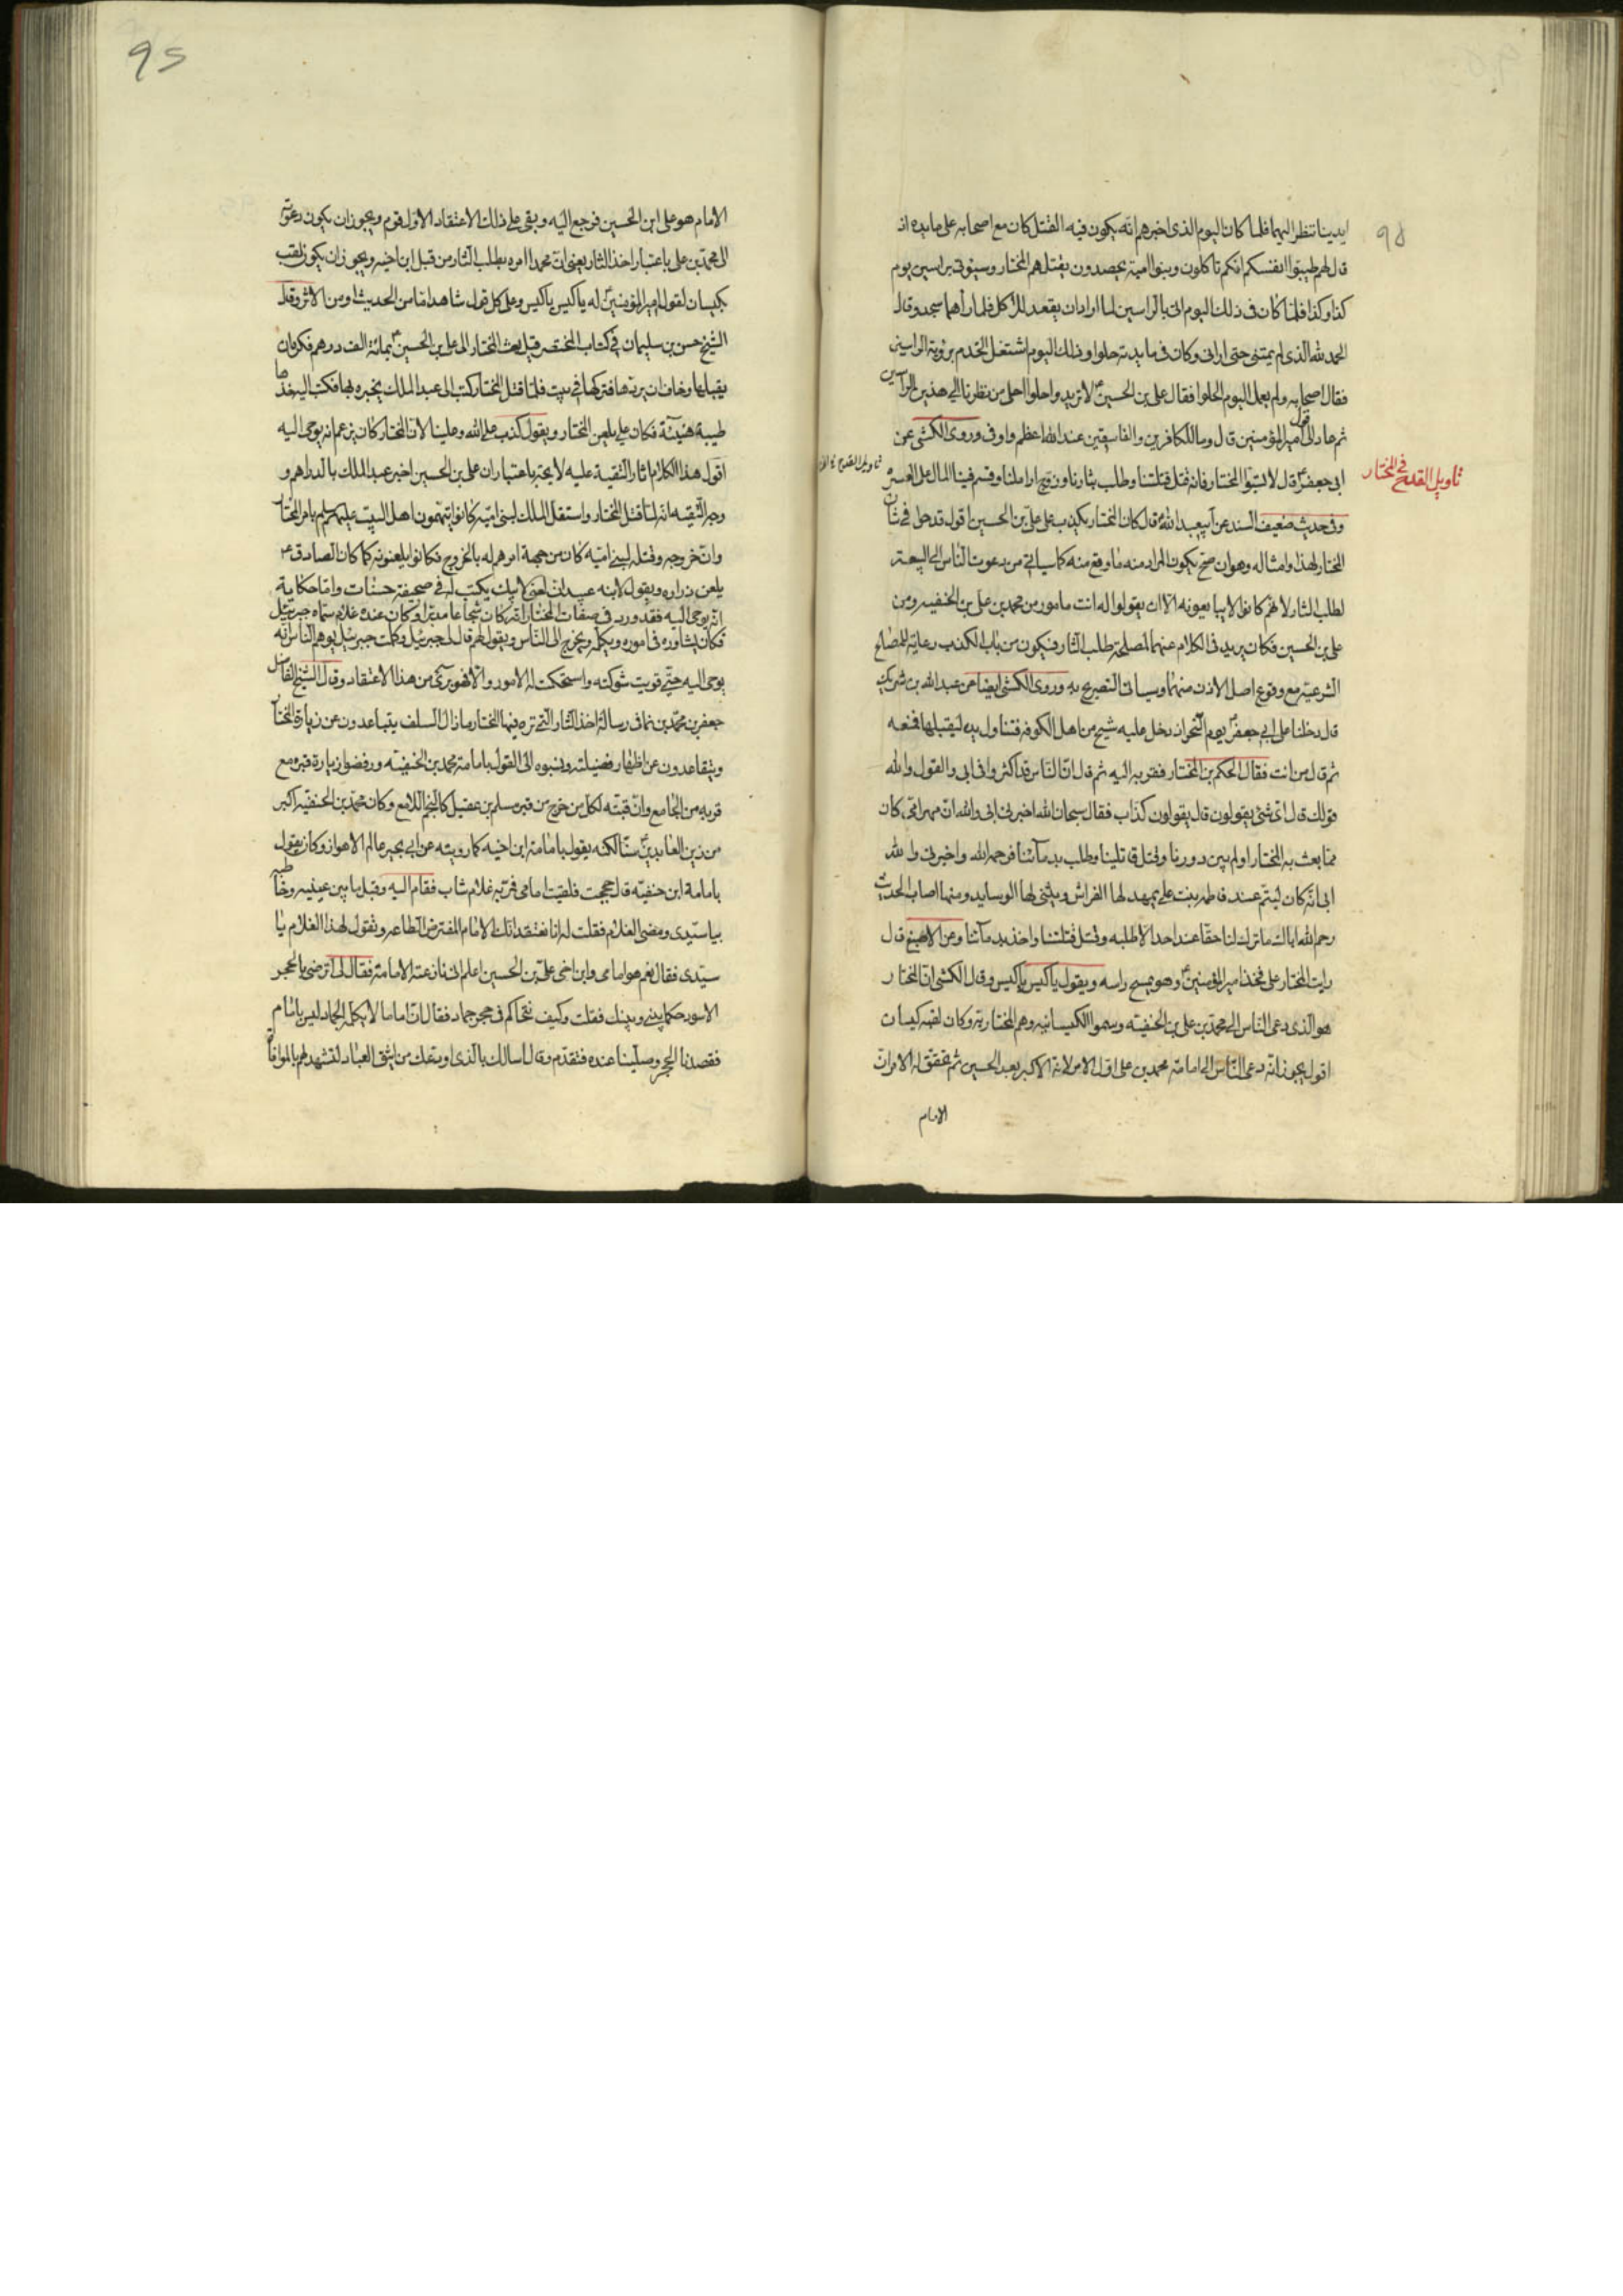 ٩٥
ايدينا ننتظر اليهما فلما كان اليوم الذى اخبرهم انّه يكون فيه القتل كان مع اصحابه على مايده اذ
قال لهم طيبوا انفسكم انكم تاكلون وبنوا امية يحصدون يقتلهم المختار وسيؤتى براسين يوم
كذا وكذا فلما كان فى ذلك اليوم اتى بالراسين لما اراد ان يقعد للاكل فلما رأهما سجد وقال
الحمد لله الذى لم يمتنى حتى ارانى وكان فى مايدته حلوا وذلك اليوم اشتغل الخدم برؤية الراسين
فقال اصحابه ولم يعمل اليوم الحلوا فقال على بن الحسين لا نريد واحلوا احلى من نظرنا الى هذين الرأسين
ثم عاد الى قول امير المؤمنين قال وما للكافرين والفاسقين عند الله اعظم واوفى وروى الكشى عن
تاويل القدح فى المختار
ابى جعفر قال لا تسبّوا المختار فانه قتل قتلتنا وطلب بثارنا وزوج اراملنا وقسم فينا المال على العسرة
وفى حديث ضعيف السند عن ابيعبد الله قال كان المختار يكذب على علىّ بن الحسين اقول قدحوا فى شأن
المختار لهذا وامثاله وهو ان صح يكون المراد منه ما وقع منه كما سياتى من دعوت الناس الى البيعة
لطلب الثار لانهم كانوا لا يبايعونه الّا ان يقولوا له انت مامور من محمد بن على بن الحنفيه ومن
على بن الحسين فكان يريد فى الكلام عنهما لمصلحة طلب الثار فيكون من باب الكذب رعاية للمصالح
الشرعية مع وقوع اصل الاذن منهما وسياتى التصريح به وروى الكشى ايضا عن عبد الله بن شريك
قال دخلنا على ابى جعفر يوم النحر اذ دخل عليه شيخ من اهل الكوفه فتناول يده ليقبلها فمنعه
ثم قال من انت فقال الحكم بن المختار فقربه اليه ثم قال انّ الناس قد اكثروا فى ابى والقول والله
قولك قال اى شئ يقولون قال يقولون كذاب فقال سبحان الله اخبرنى ابى والله ان مهر امى كان
مما بعث به المختار اولم يبن دورنا وقتل قاتلينا وطلب بدمآئنا فرحمه الله واخبرنى والله
ابى انّه كان ليتم عند فاطمه بنت على يمهد لها الفراش ويثنى لها الوسايد ومنها اصاب الحديث
رحم الله اباك ما ترك لنا حقا عند احد الا طلبه وقتل قتلتنا واخذ بدمآئنا وعن الاصبغ قال
رايت المختار على فخذ امير المؤمنين وهو يمسح راسه ويقول ياكيس ياكيس وقال الكشى ان المختار
هو الذى دعى الناس الى محمّد بن على بن الحنفيّه وسموا الكيسانيه وهم المختاريه وكان لقبه كيسان
اقول يجوز انّه دعى النّاس الى امامة محمد بن على اوّل الامر لانه الاكبر بعد الحسين ثم تحقق له الامر ان
الامام
٩٥
الامام هو على ابن الحسين فرجع اليه وبقى على ذلك الاعتقاد الاول قوم ويجوز ان يكون دعوته
الى محمّد بن على باعتبار اخذ الثار يعنى انّ محمدا امره بطلب الثار من قبل ابن اخيه ويجوز ان يكون لقب
بكيسان لقول امير المؤمنين له ياكيس ياكيس وعلى كل قول شاهد امّا من الحديث او من الاثر وقال
الشيخ حسن بن سليمان فى كتاب المختصر قيل بعث المختار الى على بن الحسين بمائة الف درهم فكره ان
يقبلها وخاف ان يردها فتركها فى بيت فلما قتل المختار كتب الى عبد الملك يخبره بها فكتب اليه خذها
طيبة هنيئة فكان على يلعن المختار ويقول كذب على الله وعلينا لان المختار كان يزعم انه يوحى اليه
اقول هذا الكلام اثار التقية عليه لايحة باعتبار ان على بن الحسين اخبر عبد الملك بالدراهم و
وجه التقيه انه لما قتل المختار واستقل الملك لبنى اميّه كانوا يتهمون اهل البيت عليهم بامر المختار
وانّ خروجه وقتله لبنى اميّه كان من جهة امرهم له بالخروج فكانوا يلعنونه كما كان الصادق ع
يلعن زراره ويقول لابنه عبيد ان لعنى لابيك يكتب له فى صحيفة حسنات وامّا حكاية
انه يوحى اليه فقد ورد فى صفات المختار انّه كان شجاعا مدبرا وكان عنده غلام سمّاه جبرئيل
فكان يشاوره فى اموره ويكلّمه ويخرج الى الناس ويقول لهم قال لى جبرئيل وكلمت جبرئيل يوهم الناس انّه
يوحى اليه حتّى قويت شوكته واستحكمت له الامور والّا فهو برئ من هذا الاعتقاد وقال الشيخ الفاضل
جعفر بن محمّد بن نما فى رسالة اخذ الثار التى نزه فيها المختار ما زال السلف يتباعدون عن زيارة المختار
ويتقاعدون عن اظهار فضيلته ونسبوه الى القول بامامة محمد بن الحنفيّه ورفضوا زيارة قبره مع
قربه من الجامع وانّ قبّته لكل من خرج من قبر مسلم بن عقيل كالنجم اللامع وكان محمّد بن الحنفيّه اكبر
من زين العابدين سنّا لكنه يقول بامامة ابن اخيه كما رويته عن ابى بجير عالم الاهواز وكان يقول
بامامة ابن حنفيّه قال حججت فلقيت امامى فمرّ به غلام شاب فقام اليه وقبل ما بين عينيه وخاطبه
بياسيّدى ومضى الغلام فقلت له انا نعتقد انك الامام المفترض الطاعه وتقول لهذا الغلام يا
سيّدى فقال نعم هو امامى وابن اخى علىّ بن الحسين اعلم انى نازعته الامامة فقال لى اترضى بالحجر
الاسود حكما بينى وبينك فقلت وكيف نتحاكم فى حجر جماد فقال ان اماما لا يكلمه الجماد ليس بامام
فقصدنا الحجر وصلّينا عنده فتقدّم وقال اسالك بالذى اودعك مواثيق العباد لتشهد لهم بالموافاة